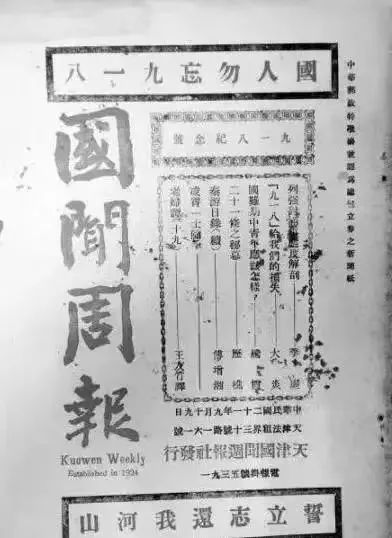 國人勿忘九一八
中華郵政特准掛號認為總包立券之新聞紙
九一八紀念號
列強 態度解剖 季
「九一八」給我們的損失 大炎
國難期中青年應該怎樣？
二十一條之秘幕 歷樵
秦游日錄(續) 傅增湘
一士
老婦譚 十九 王 譯
國聞周報
Kuowen Weekly
Established in 1924
中華民國二十一年九月十九日
天津法租界三十號路一六一號
天津國聞週報社發行
電報掛號五三九一
誓立志還我河山